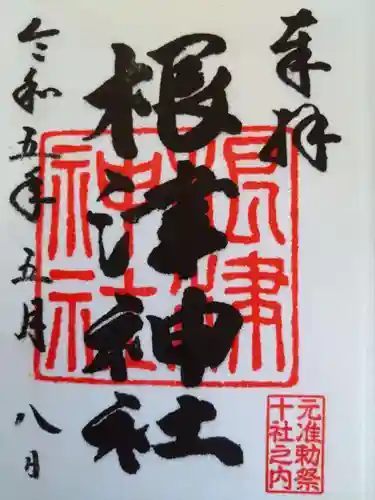 奉拝
根津神社
令和五年五月八日
根津
神社
元准勅祭
十社之内